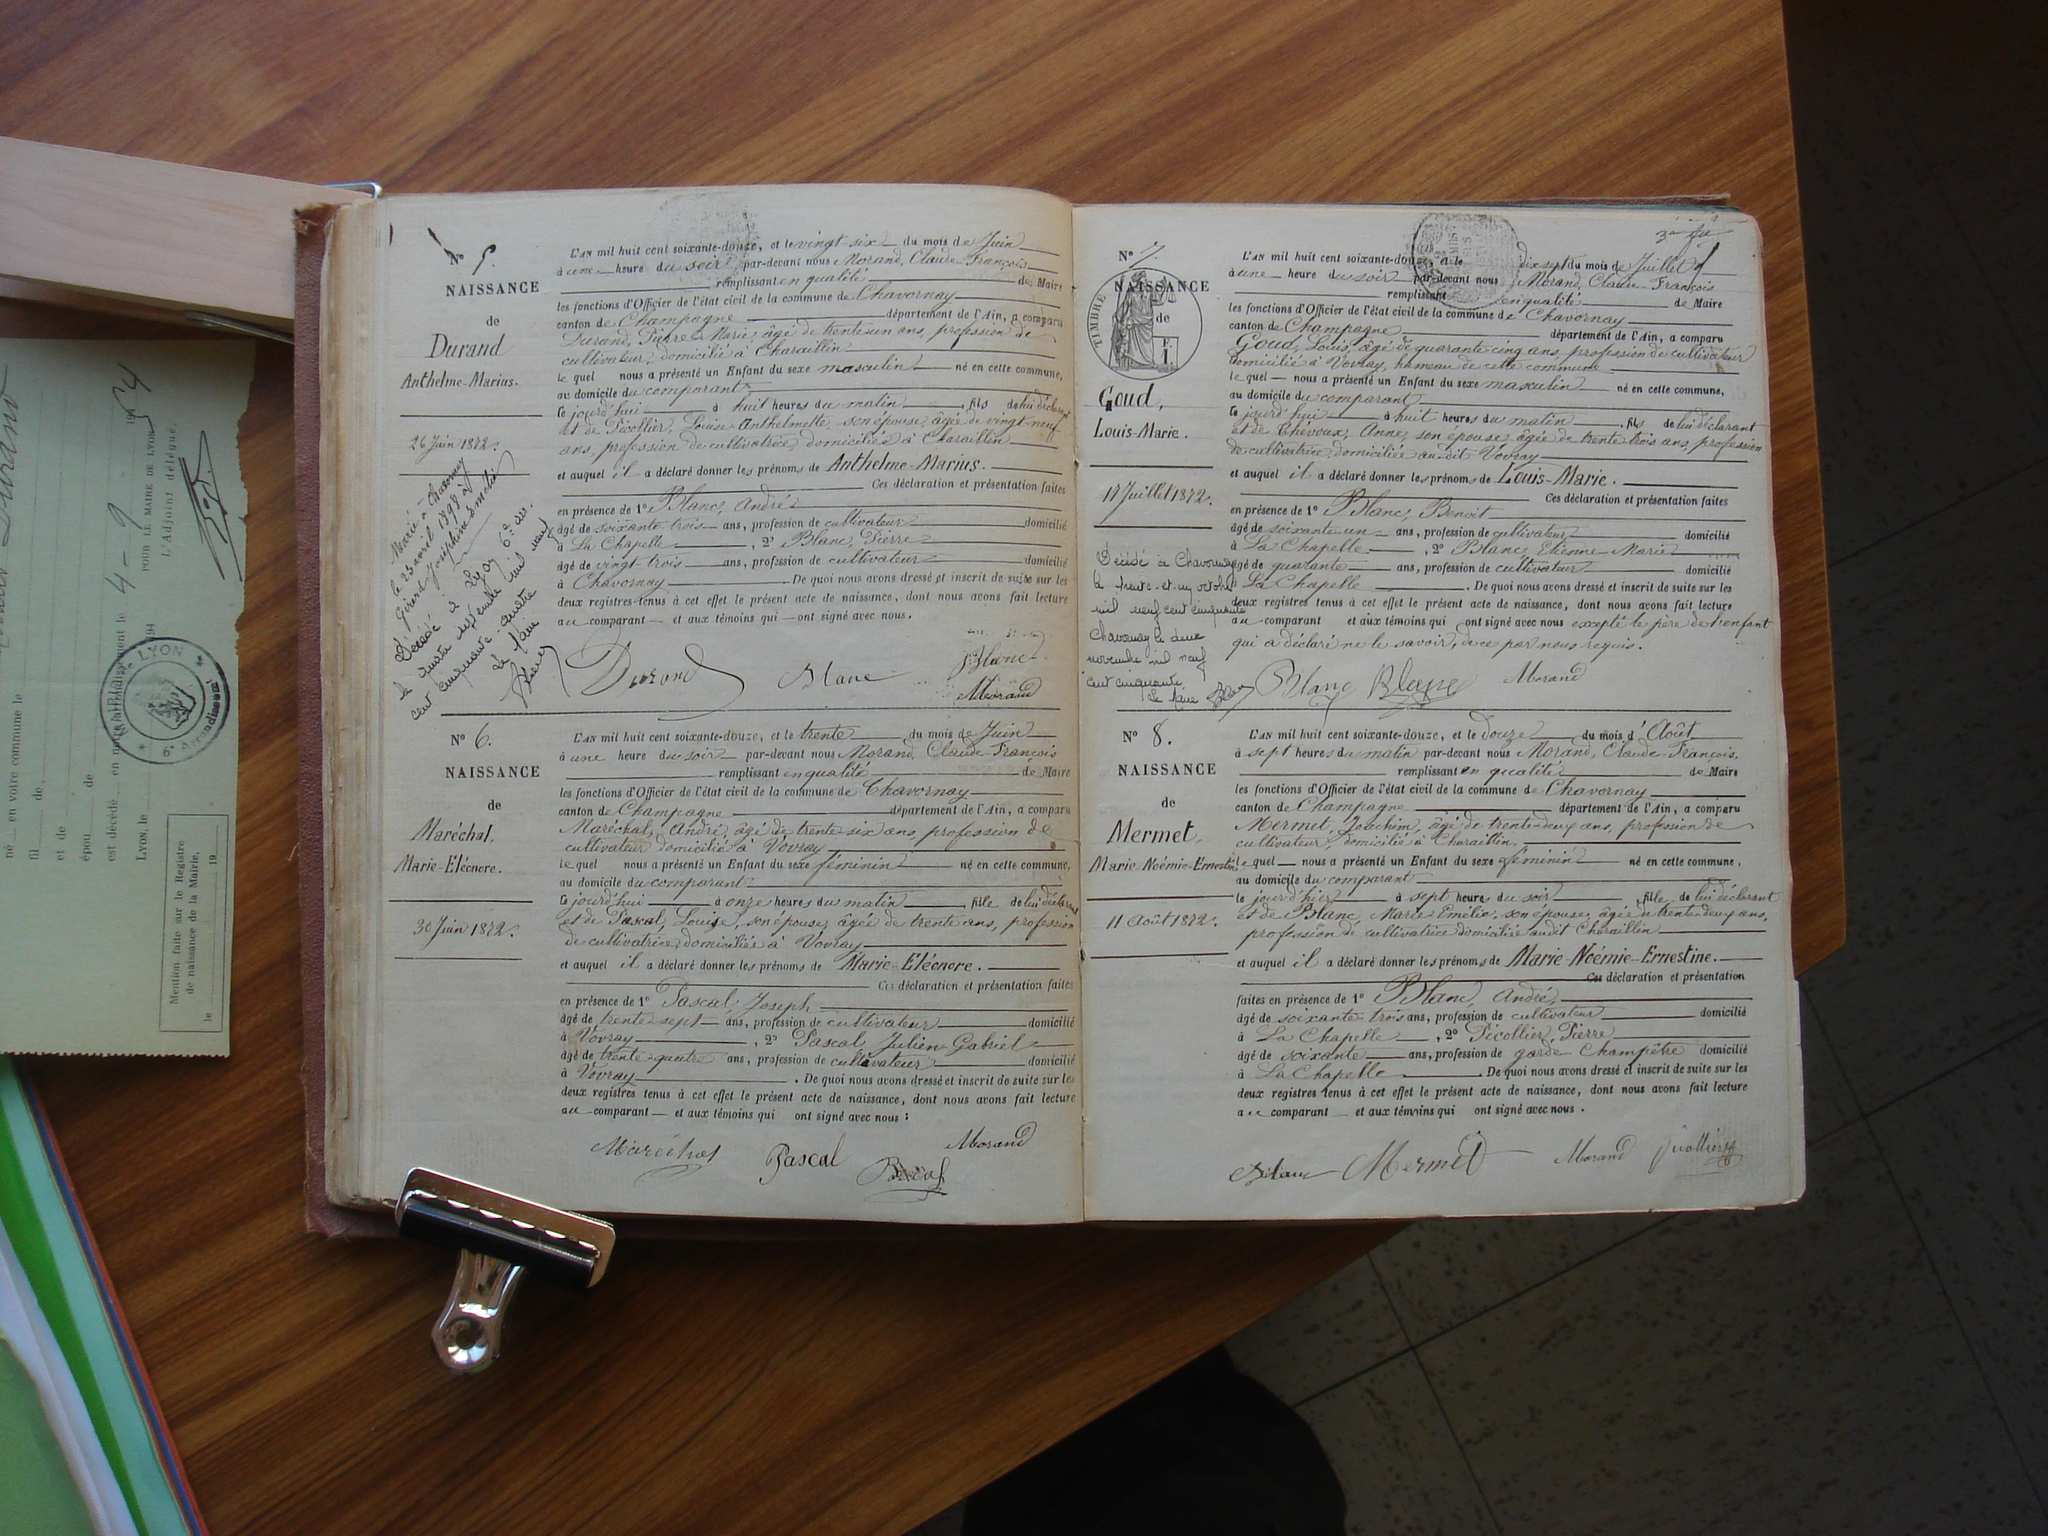 N° 5.
NAISSANCE
de
Durand
Anthelme-Marius.
26 Juin 1872.
Marié à Chavornay
le 23 avril 1898 à
Girard Joséphine Amélie
Décédé à Lyon 6e arr.
le quatre septembre mil neuf
cent cinquante-quatre
Le Maire
L'AN mil huit cent soixante-douze, et le vingt-six du mois de Juin
à une heure du soir par-devant nous Morand, Claude-François
remplissant en qualité de Maire
les fonctions d'Officier de l'état civil de la commune de Chavornay
canton de Champagne département de l'Ain, a comparu
Durand, Pierre-Marie, âgé de trente-un ans, profession de
cultivateur, domicilié à Charaillin
le quel nous a présenté un Enfant du sexe masculin né en cette commune,
au domicile du comparant
le jourd'hui à huit heures du matin, fils de lui déclarant
et de Picollier, Louise Anthelmette, son épouse, âgée de vingt-neuf
ans, profession de cultivatrice, domiciliée à Charaillin
et auquel il a déclaré donner les prénoms de Anthelme-Marius.
Ces déclaration et présentation faites
en présence de 1° Blanc, André
âgé de soixante-trois ans, profession de cultivateur domicilié
à La Chapelle, 2° Blanc, Pierre
âgé de vingt trois ans, profession de cultivateur domicilié
à Chavornay. De quoi nous avons dressé et inscrit de suite sur les
deux registres tenus à cet effet le présent acte de naissance, dont nous avons fait lecture
au comparant et aux témoins qui ont signé avec nous.
Durand Blanc Blanc
Morand
N° 6.
NAISSANCE
de
Maréchal,
Marie-Eléonore.
30 Juin 1872.
L'AN mil huit cent soixante-douze, et le trente du mois de Juin
à une heure du soir par-devant nous Morand, Claude François
remplissant en qualité de Maire
les fonctions d'Officier de l'état civil de la commune de Chavornay
canton de Champagne département de l'Ain, a comparu
Maréchal, André, âgé de trente six ans, profession de
cultivateur domicilié à Vovray
le quel nous a présenté un Enfant du sexe féminin né en cette commune,
au domicile du comparant
le jourd'hui à onze heures du matin, fille de lui déclarant
et de Pascal, Louise, son épouse, âgée de trente ans, profession
de cultivatrice, domiciliée à Vovray
et auquel il a déclaré donner les prénoms de Marie-Eléonore.
Ces déclaration et présentation faites
en présence de 1° Pascal, Joseph
âgé de trente-sept ans, profession de cultivateur domicilié
à Vovray, 2° Pascal, Julien-Gabriel
âgé de trente-quatre ans, profession de cultivateur domicilié
à Vovray. De quoi nous avons dressé et inscrit de suite sur les
deux registres tenus à cet effet le présent acte de naissance, dont nous avons fait lecture
au comparant et aux témoins qui ont signé avec nous :
Maréchal Pascal Morand
Pascal
N° 7.
TIMBRE
NAISSANCE
de
Goud,
Louis-Marie.
17 Juillet 1872.
Décédé à Chavornay
le trente-et-un octobre
mil neuf cent cinquante
Chavornay le deux
novembre mil neuf
cent cinquante
Le Maire
L'AN mil huit cent soixante-douze, et le dix sept du mois de Juillet
à une heure du soir par-devant nous Morand, Claude-François
remplissant en qualité de Maire
les fonctions d'Officier de l'état civil de la commune de Chavornay
canton de Champagne département de l'Ain, a comparu
Goud, Louis, âgé de quarante cinq ans, profession de cultivateur
domicilié à Vovray, hameau de cette commune
le quel nous a présenté un Enfant du sexe masculin né en cette commune,
au domicile du comparant
le jourd'hui à huit heures du matin, fils de lui déclarant
et de Chevoux, Anne, son épouse, âgée de trente trois ans, profession
de cultivatrice, domiciliée au dit Vovray
et auquel il a déclaré donner les prénoms de Louis-Marie.
Ces déclaration et présentation faites
en présence de 1° Blanc, Benoit
âgé de soixante-un ans, profession de cultivateur domicilié
à La Chapelle, 2° Blanc, Etienne-Marie
âgé de quarante ans, profession de cultivateur domicilié
à La Chapelle. De quoi nous avons dressé et inscrit de suite sur les
deux registres tenus à cet effet le présent acte de naissance, dont nous avons fait lecture
au comparant et aux témoins qui ont signé avec nous excepté le père de l'enfant
qui a déclaré ne le savoir, de ce par nous requis.
Blanc Blanc Morand
N° 8.
NAISSANCE
de
Mermet,
Marie-Noémie-Ernestine
11 Août 1872.
L'AN mil huit cent soixante-douze, et le douze du mois d'Août
à sept heures du matin par-devant nous Morand, Claude-François,
remplissant en qualité de Maire
les fonctions d'Officier de l'état civil de la commune de Chavornay
canton de Champagne département de l'Ain, a comparu
Mermet, Joachim, âgé de trente-deux ans, profession de
cultivateur, domicilié à Charaillin,
le quel nous a présenté un Enfant du sexe féminin né en cette commune,
au domicile du comparant
le jour d'hier à sept heures du soir, fille de lui déclarant
et de Blanc, Marie Emélie, son épouse, âgée de trente-deux ans,
profession de cultivatrice domiciliée audit Charaillin
et auquel il a déclaré donner les prénoms de Marie-Noémie-Ernestine.
Ces déclaration et présentation
faites en présence de 1° Blanc, André,
âgé de soixante trois ans, profession de cultivateur domicilié
à La Chapelle, 2° Picollier, Pierre
âgé de soixante ans, profession de garde Champêtre domicilié
à La Chapelle. De quoi nous avons dressé et inscrit de suite sur les
deux registres tenus à cet effet le présent acte de naissance, dont nous avons fait lecture
au comparant et aux témoins qui ont signé avec nous.
Blanc Mermet Morand Picollier
Durand
né en votre commune le
fil de
et de
épou de
est décédé en notre arrondissement le 4-9 1954
Lyon, le 194
POUR LE MAIRE DE LYON
L'Adjoint délégué,
MAIRIE LYON
6e Arrondissement
Mention faite sur le Registre
de naissance de la Mairie,
le 19